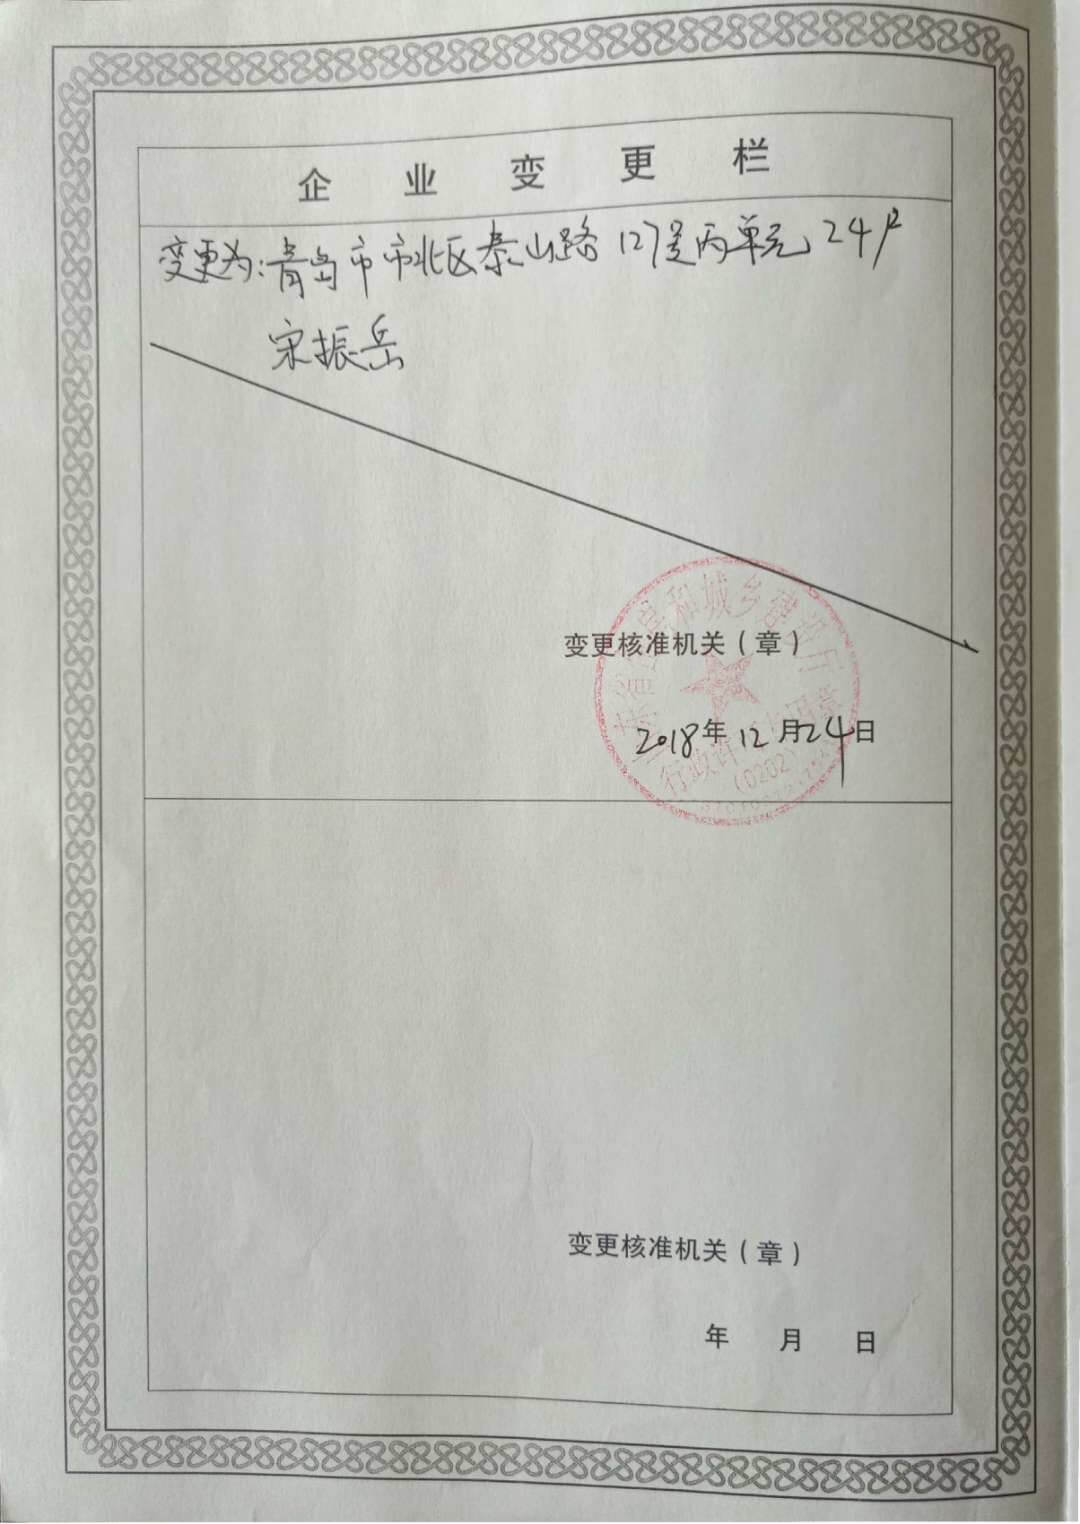 企业变更栏
变更为:青岛市市北区泰山路127号丙单元24户
宋振岳
变更核准机关(章)
2018年12月24日
省住房和城乡建设厅
行政许可专用章
(0202)
变更核准机关(章)
年 月 日